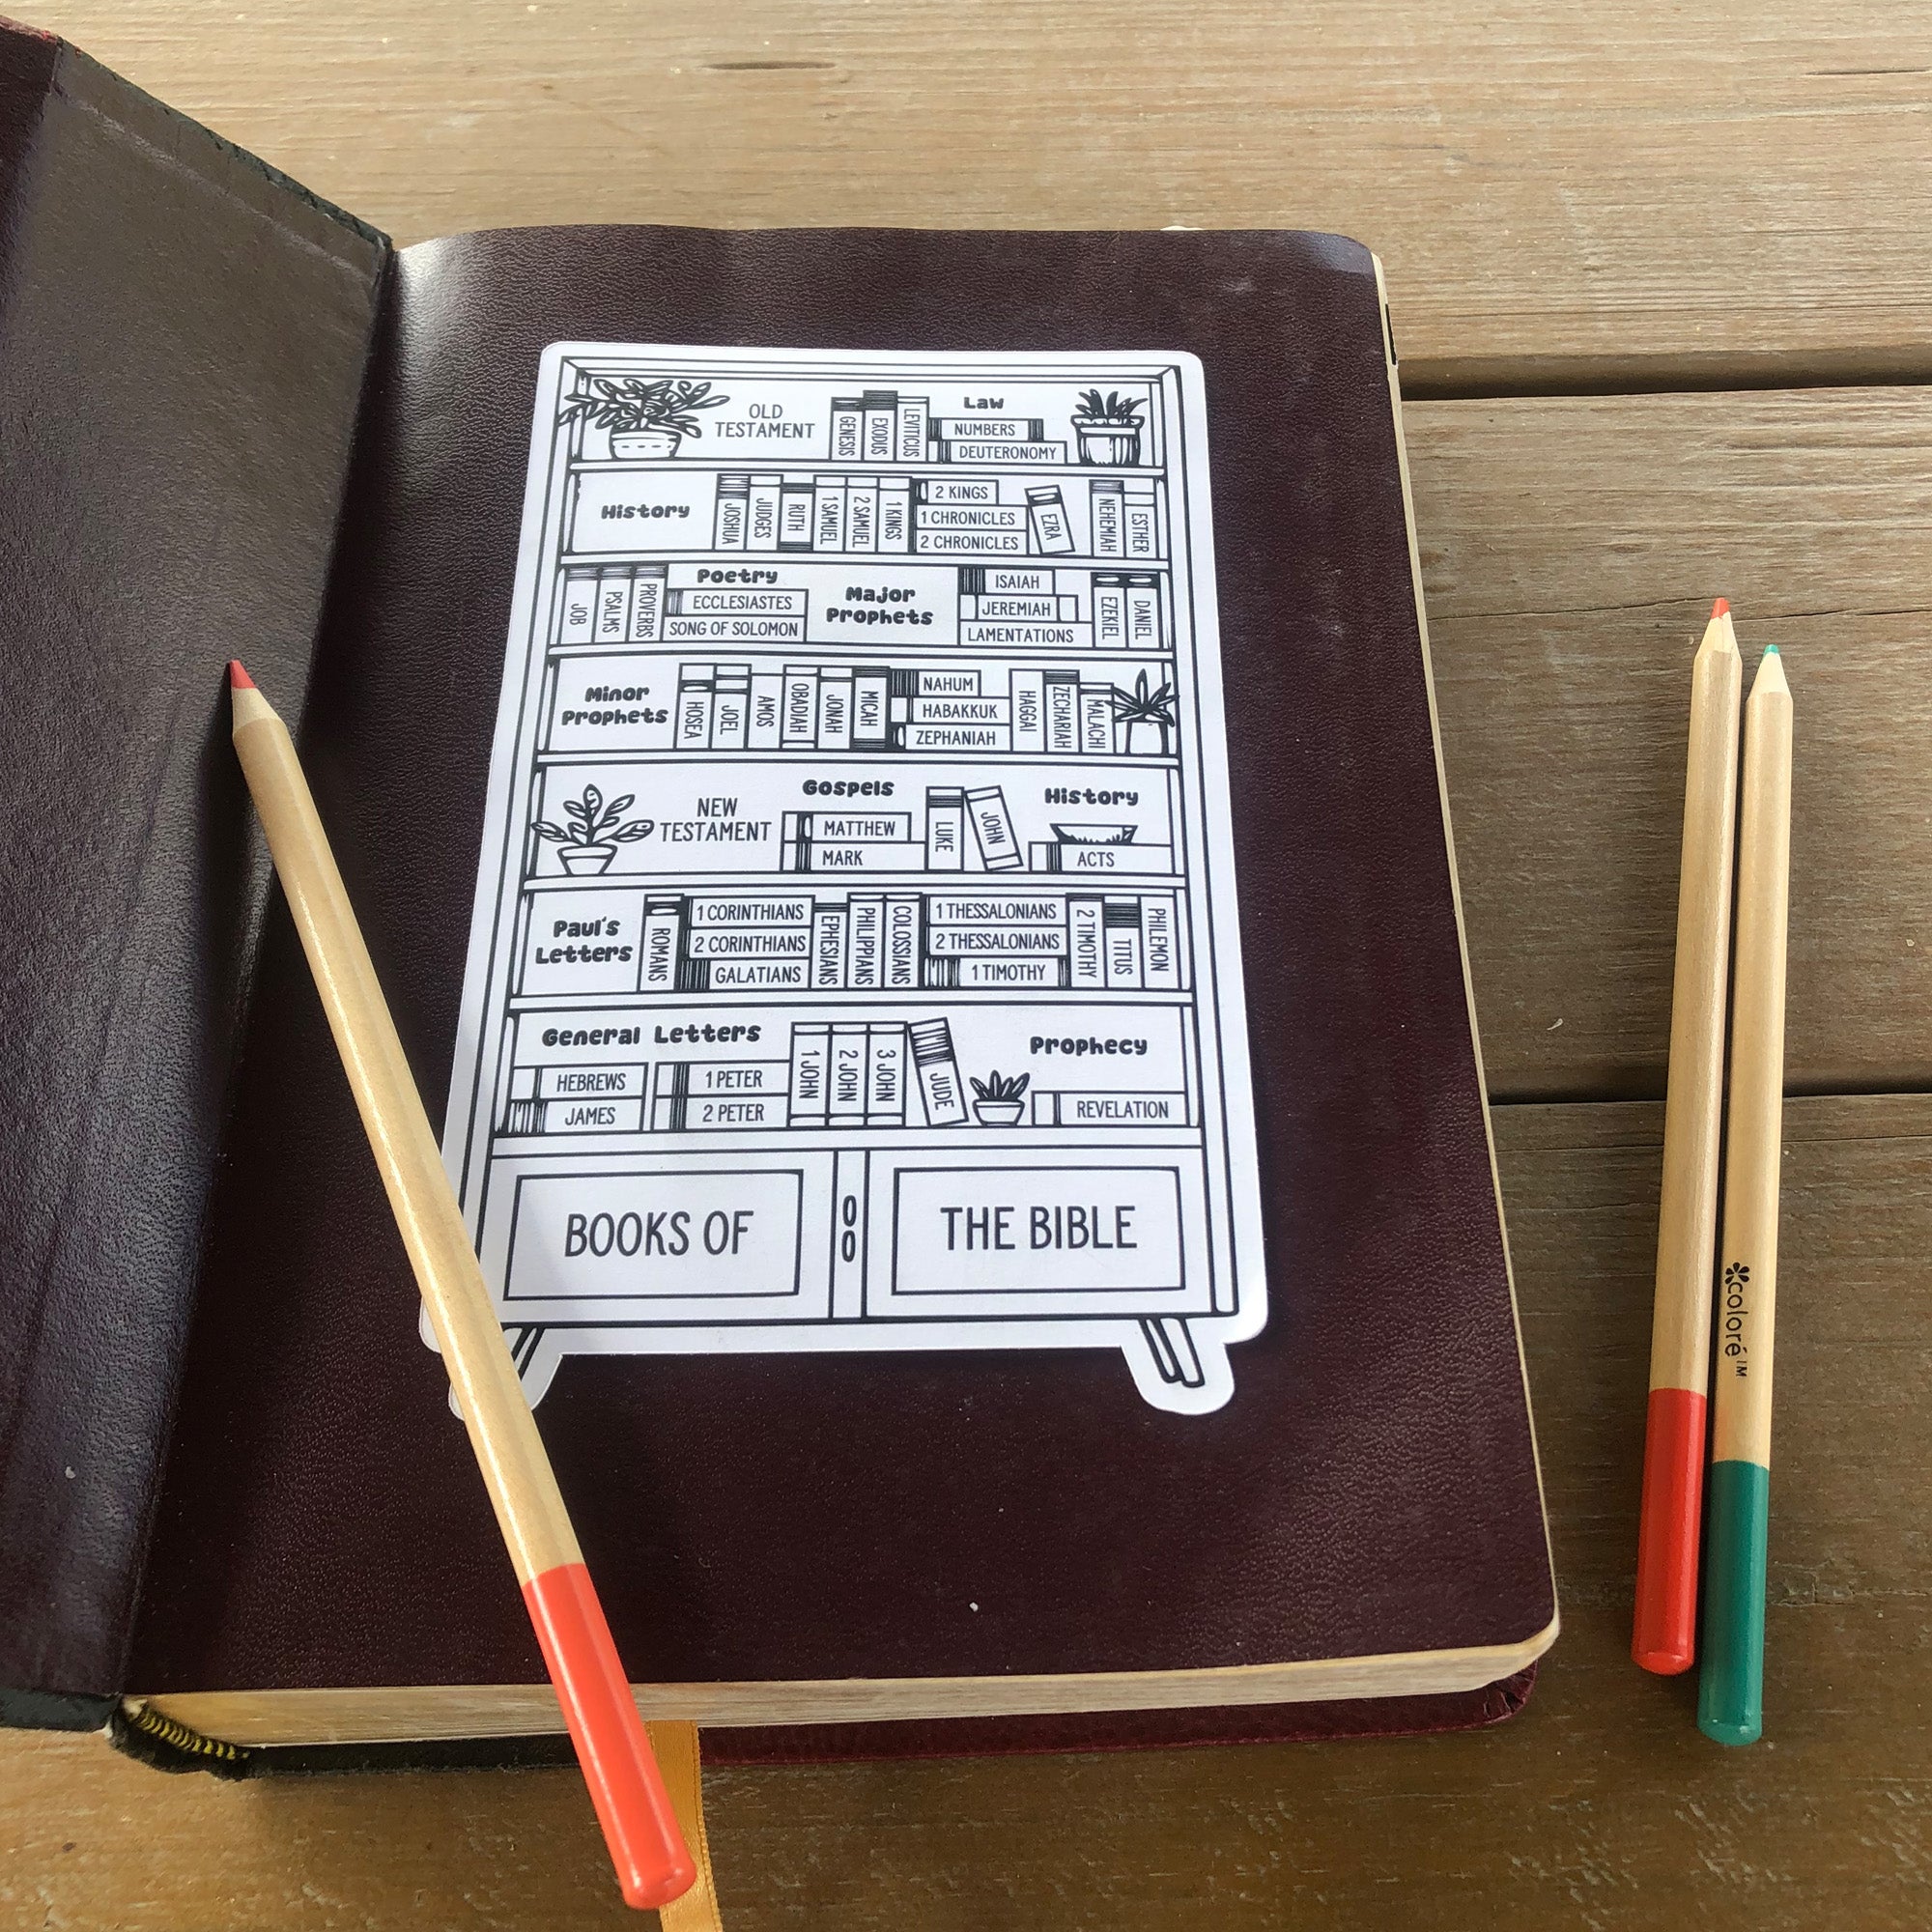 OLD
TESTAMENT
GENESIS
EXODUS
LEVITICUS
Law
NUMBERS
DEUTERONOMY
History
JOSHUA
JUDGES
RUTH
1 SAMUEL
2 SAMUEL
1 KINGS
2 KINGS
1 CHRONICLES
2 CHRONICLES
EZRA
NEHEMIAH
ESTHER
JOB
PSALMS
PROVERBS
Poetry
ECCLESIASTES
SONG OF SOLOMON
Major
Prophets
ISAIAH
JEREMIAH
LAMENTATIONS
EZEKIEL
DANIEL
Minor
Prophets
HOSEA
JOEL
AMOS
OBADIAH
JONAH
MICAH
NAHUM
HABAKKUK
ZEPHANIAH
HAGGAI
ZECHARIAH
MALACHI
NEW
TESTAMENT
Gospels
MATTHEW
MARK
LUKE
JOHN
History
ACTS
Paul's
Letters
ROMANS
1 CORINTHIANS
2 CORINTHIANS
GALATIANS
EPHESIANS
PHILIPPIANS
COLOSSIANS
1 THESSALONIANS
2 THESSALONIANS
1 TIMOTHY
2 TIMOTHY
TITUS
PHILEMON
General Letters
HEBREWS
JAMES
1 PETER
2 PETER
1 JOHN
2 JOHN
3 JOHN
JUDE
Prophecy
REVELATION
BOOKS OF
THE BIBLE
coloré™